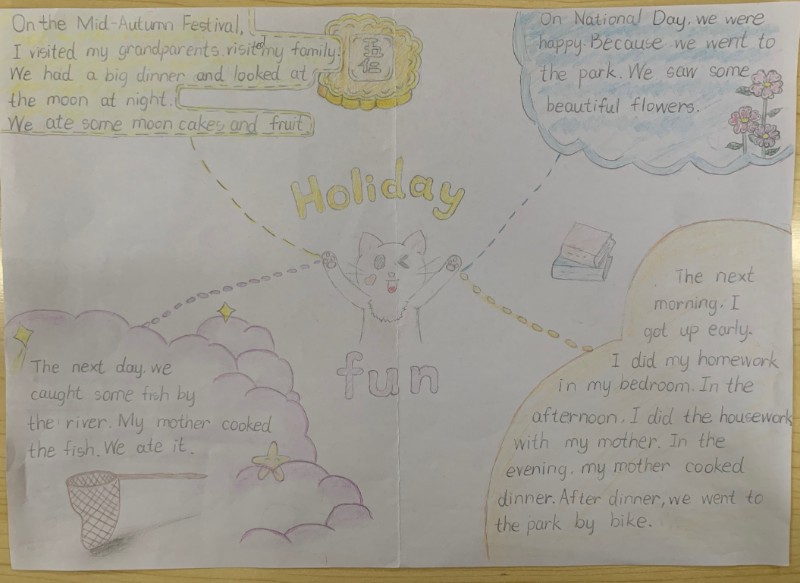 On the Mid-Autumn Festival,
I visited my grandparents visited my family.
We had a big dinner and looked at
the moon at night.
We ate some moon cakes and fruit
五仁
On National Day, we were
happy. Because we went to
the park. We saw some
beautiful flowers.
Holiday
fun
The next day, we
caught some fish by
the river. My mother cooked
the fish. We ate it.
The next
morning, I
got up early.
I did my homework
in my bedroom. In the
afternoon, I did the housework
with my mother. In the
evening, my mother cooked
dinner. After dinner, we went to
the park by bike.